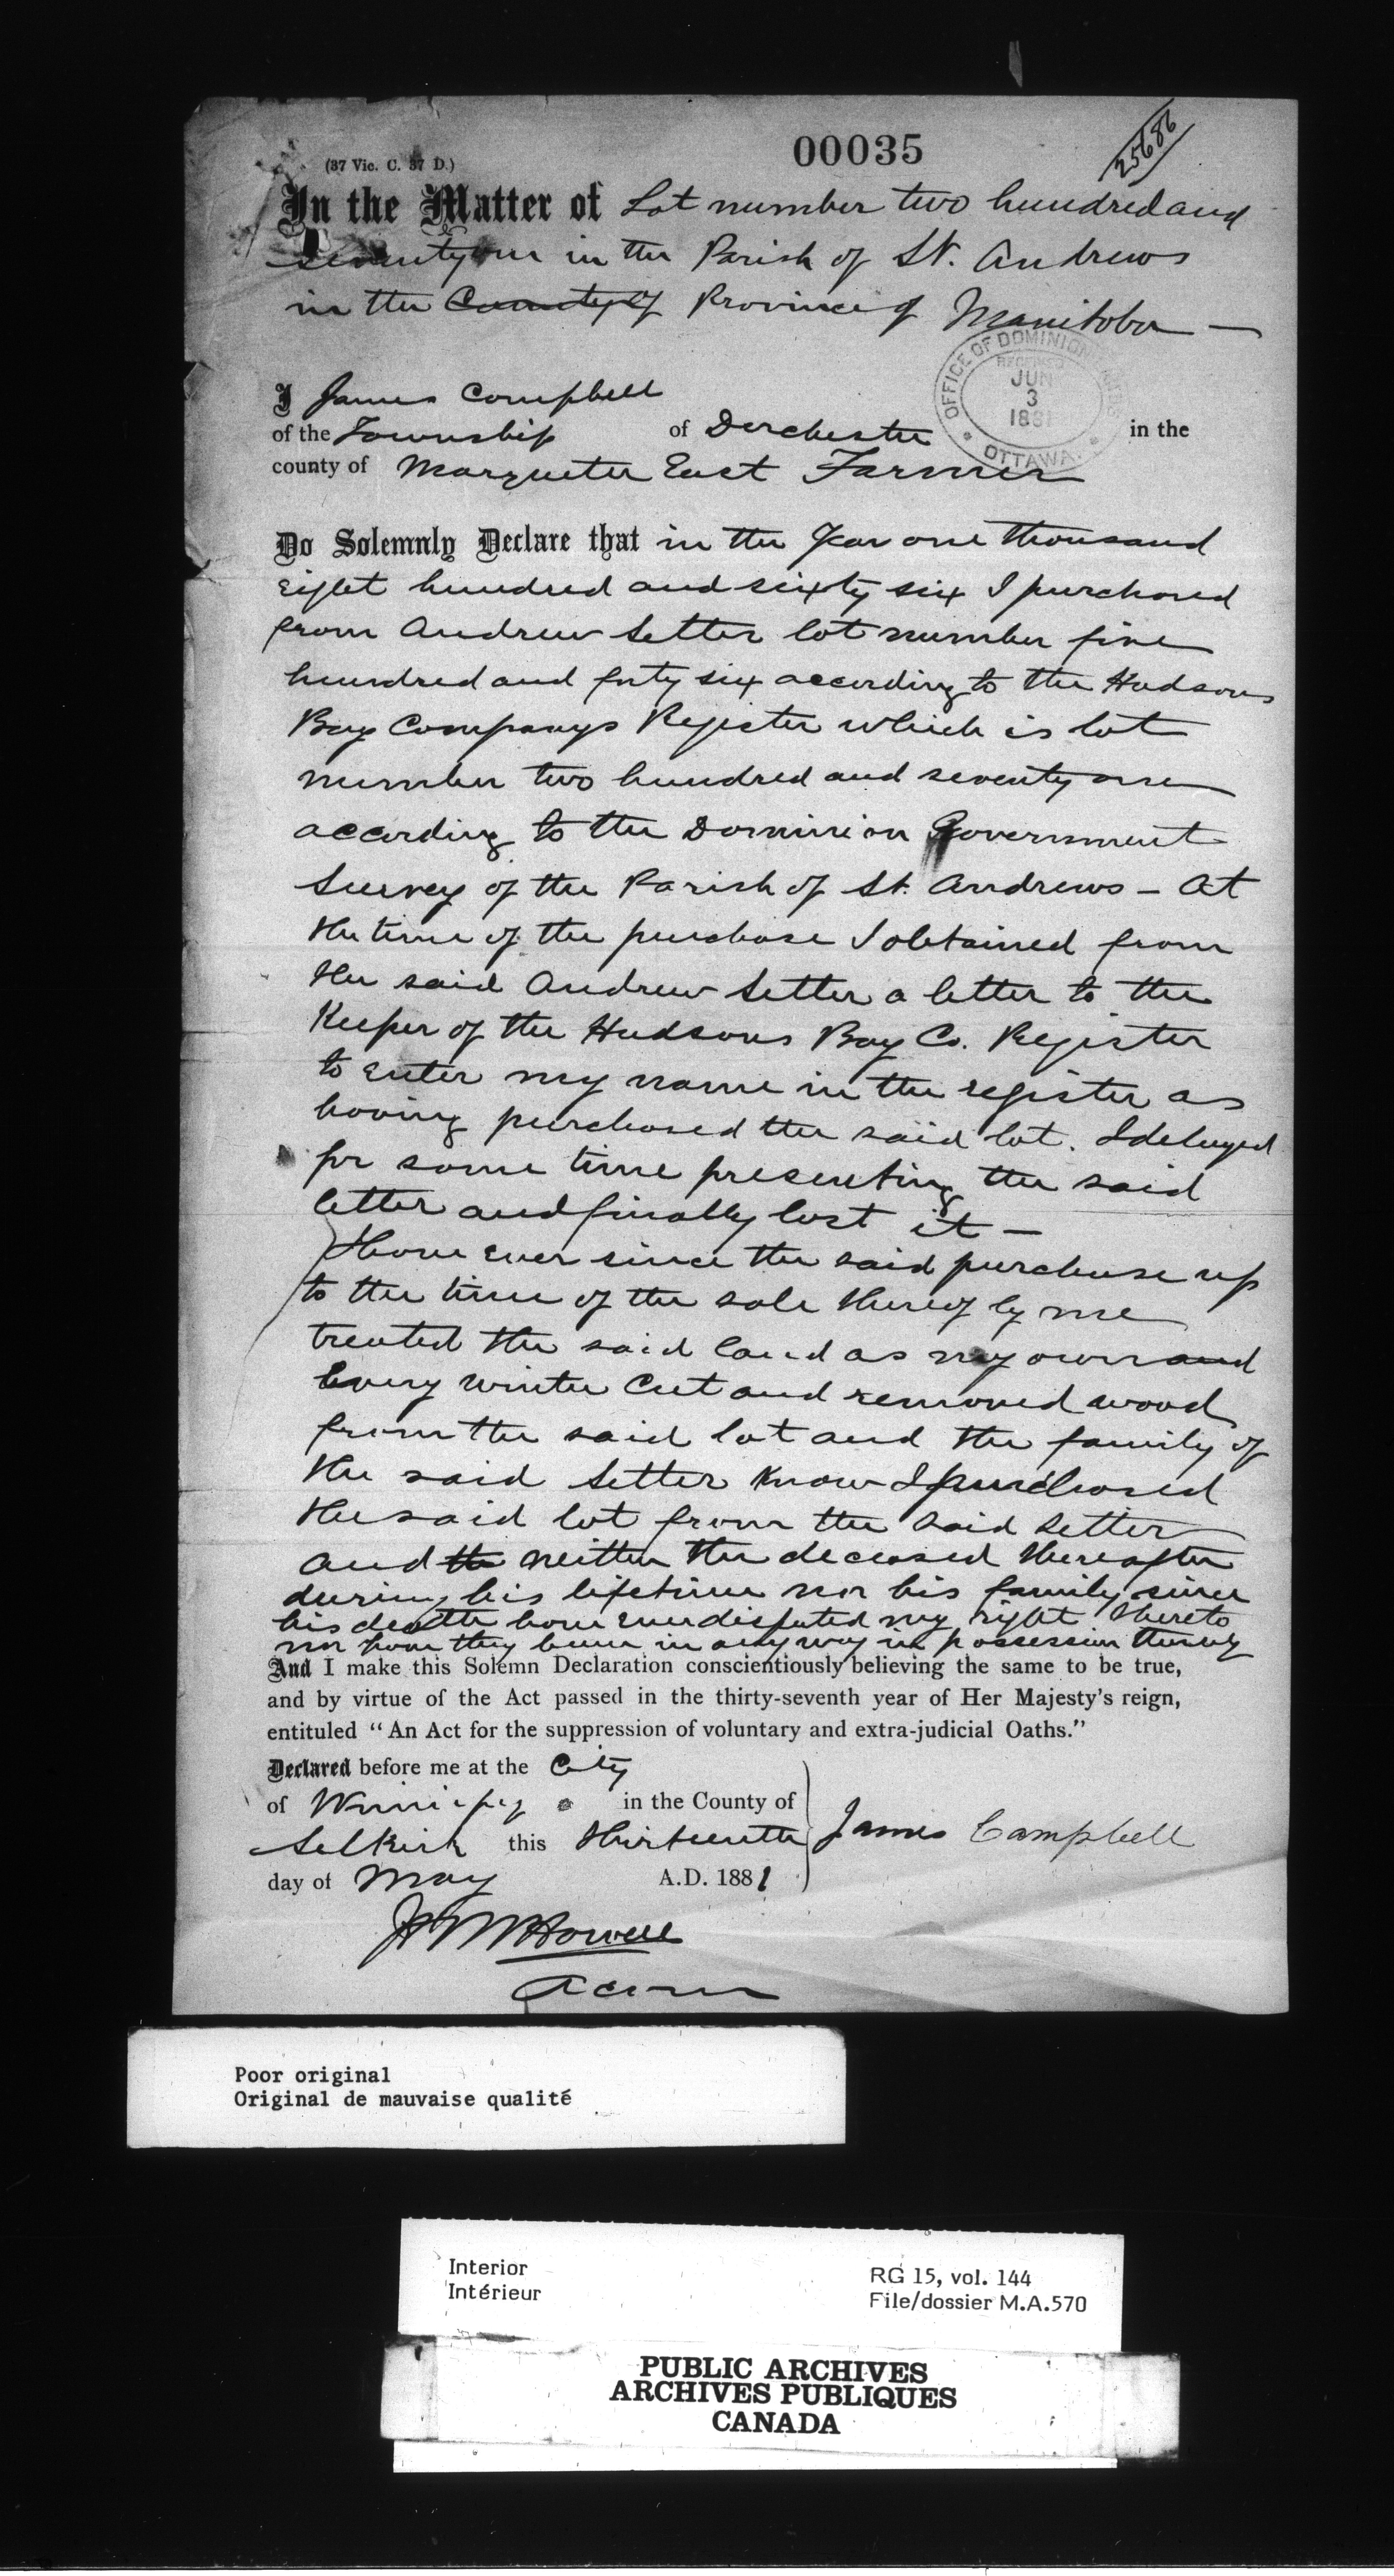 00035
25686
(37 Vic. C. 37 D.)
In the Matter of Lot number two hundred and
seventy one in the Parish of St. Andrews
in the County of Province of Manitoba —
OFFICE OF DOMINION
RECEIVED
JUN
3
1881
OTTAWA.
I James Campbell
of the Township of Dorchester in the
county of Marquette East Farmer
Do Solemnly Declare that in the Year one thousand
Eight hundred and sixty six I purchased
from Andrew Setter lot number five
hundred and forty six according to the Hudsons
Bay Companys Register which is lot
number two hundred and seventy one
according to the Dominion Government
Survey of the Parish of St. Andrews – At
the time of the purchase I obtained from
the said Andrew Setter a letter to the
Keeper of the Hudsons Bay Co. Register
to enter my name in the register as
having purchased the said lot. I delayed
for some time presenting the said
letter and finally lost it –
I have ever since the said purchase up
to the time of the sale thereof by me
treated the said land as my own and
Every winter cut and removed wood
from the said lot and the family of
the said Setter know I purchased
the said lot from the said Setter
and the neither the deceased thereafter
during his lifetime nor his family since
his death have ever disputed my right thereto
nor have they been in any way in possession thereof
And I make this Solemn Declaration conscientiously believing the same to be true,
and by virtue of the Act passed in the thirty-seventh year of Her Majesty's reign,
entituled "An Act for the suppression of voluntary and extra-judicial Oaths."
Declared before me at the City
of Winnipeg in the County of
Selkirk this thirteenth
day of May A.D. 1881
James Campbell
H M Howell
A Com
Poor original
Original de mauvaise qualité
Interior
Intérieur
RG 15, vol. 144
File/dossier M.A.570
PUBLIC ARCHIVES
ARCHIVES PUBLIQUES
CANADA